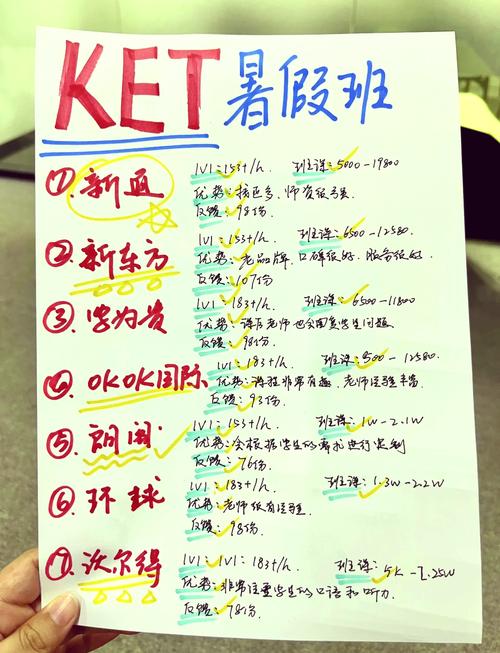 KET 暑假班
① 新通
1V1:153+/h 班课:5000-19800
优势:校区多,师资很丰
反馈:98份
② 新东方
1V1:153+/h 班课:6500-12580
优势:老品牌,口碑很好,服务很好
反馈:107份
③ 学为贵
1V1:183+/h 班课:6500-11800
优势:课后老师也会回复学生问题
反馈:98份
④ OKOK国际
1V1:183+/h 班课:500-12580
优势:课程非常有趣,老师经验丰富
反馈:93份
⑤ 朗阁
1V1:153+/h 班课:1W-2.1W
优势:会根据学生的需求进行定制
反馈:76份
⑥ 环球
1V1:183+/h 班课:1.3W-2.2W
优势:老师很有经验
反馈:98份
⑦ 沃尔得
1V1:1V1:183+/h 班课:5K-1.25W
优势:非常注重学生的口语和听力
反馈:78份